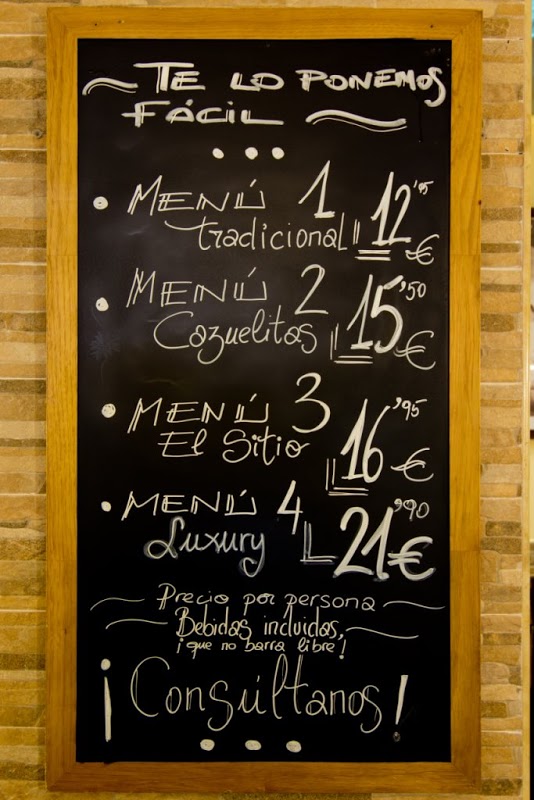 TE LO PONEMOS
FÁCIL
MENÚ 1
tradicional 12'95 €
MENÚ 2
Cazuelitas 15'50 €
MENÚ 3
El Sitio 16'95 €
MENÚ 4
Luxury 21'90 €
Precio por persona
Bebidas incluidas,
¡que no barra libre!
¡Consúltanos!